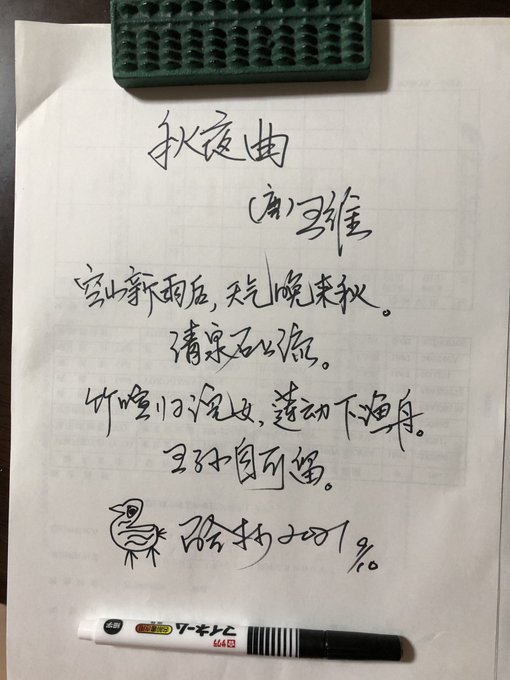 秋夜曲
(唐)王维
空山新雨后,天气晚来秋。
清泉石上流。
竹喧归浣女,莲动下渔舟。
王孙自可留。
抄2021 9/10
マイネーム